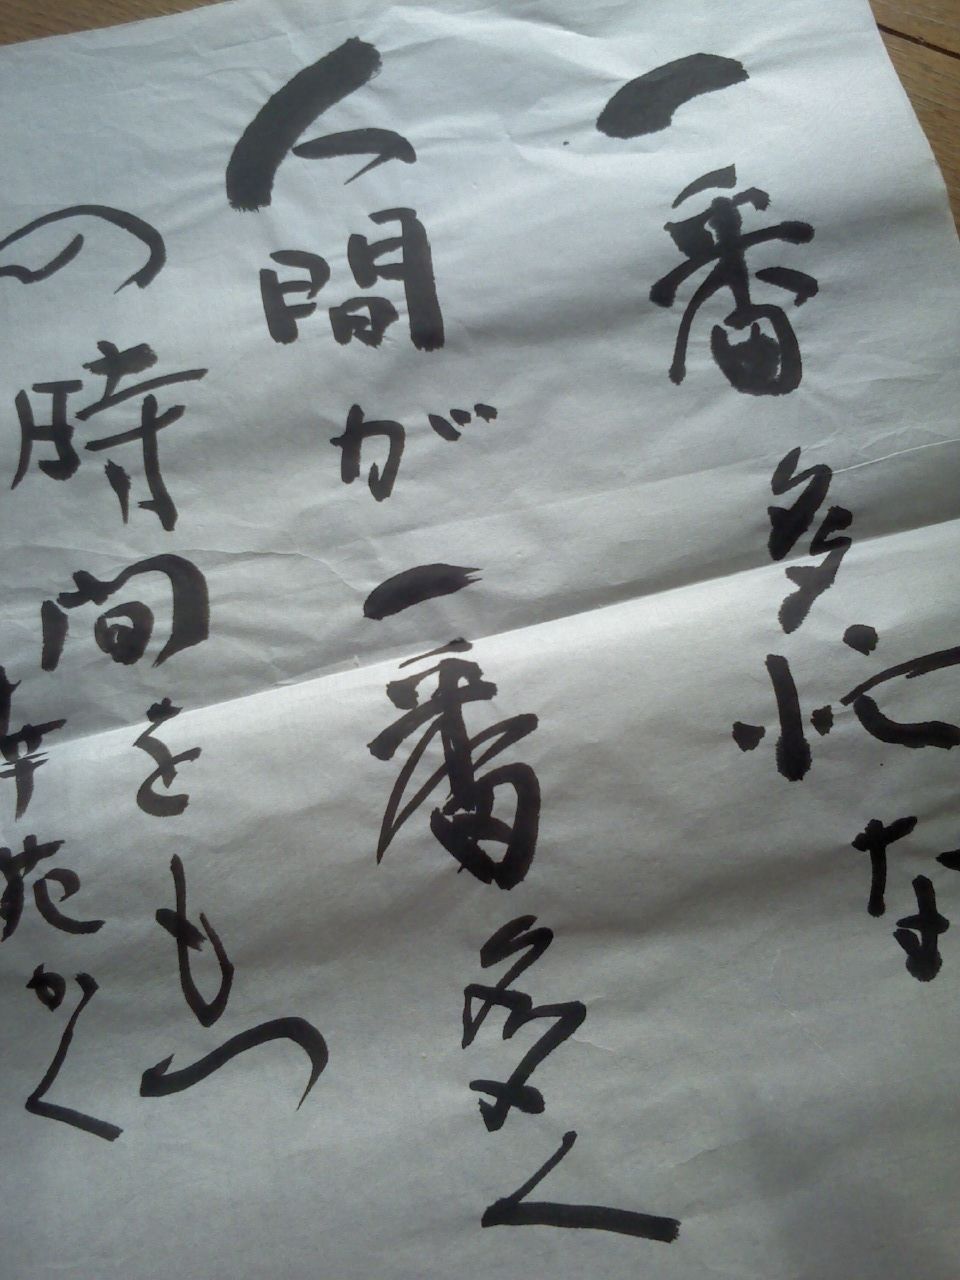 一番多忙な
人間が一番多く
の時間をもつ
苑かく